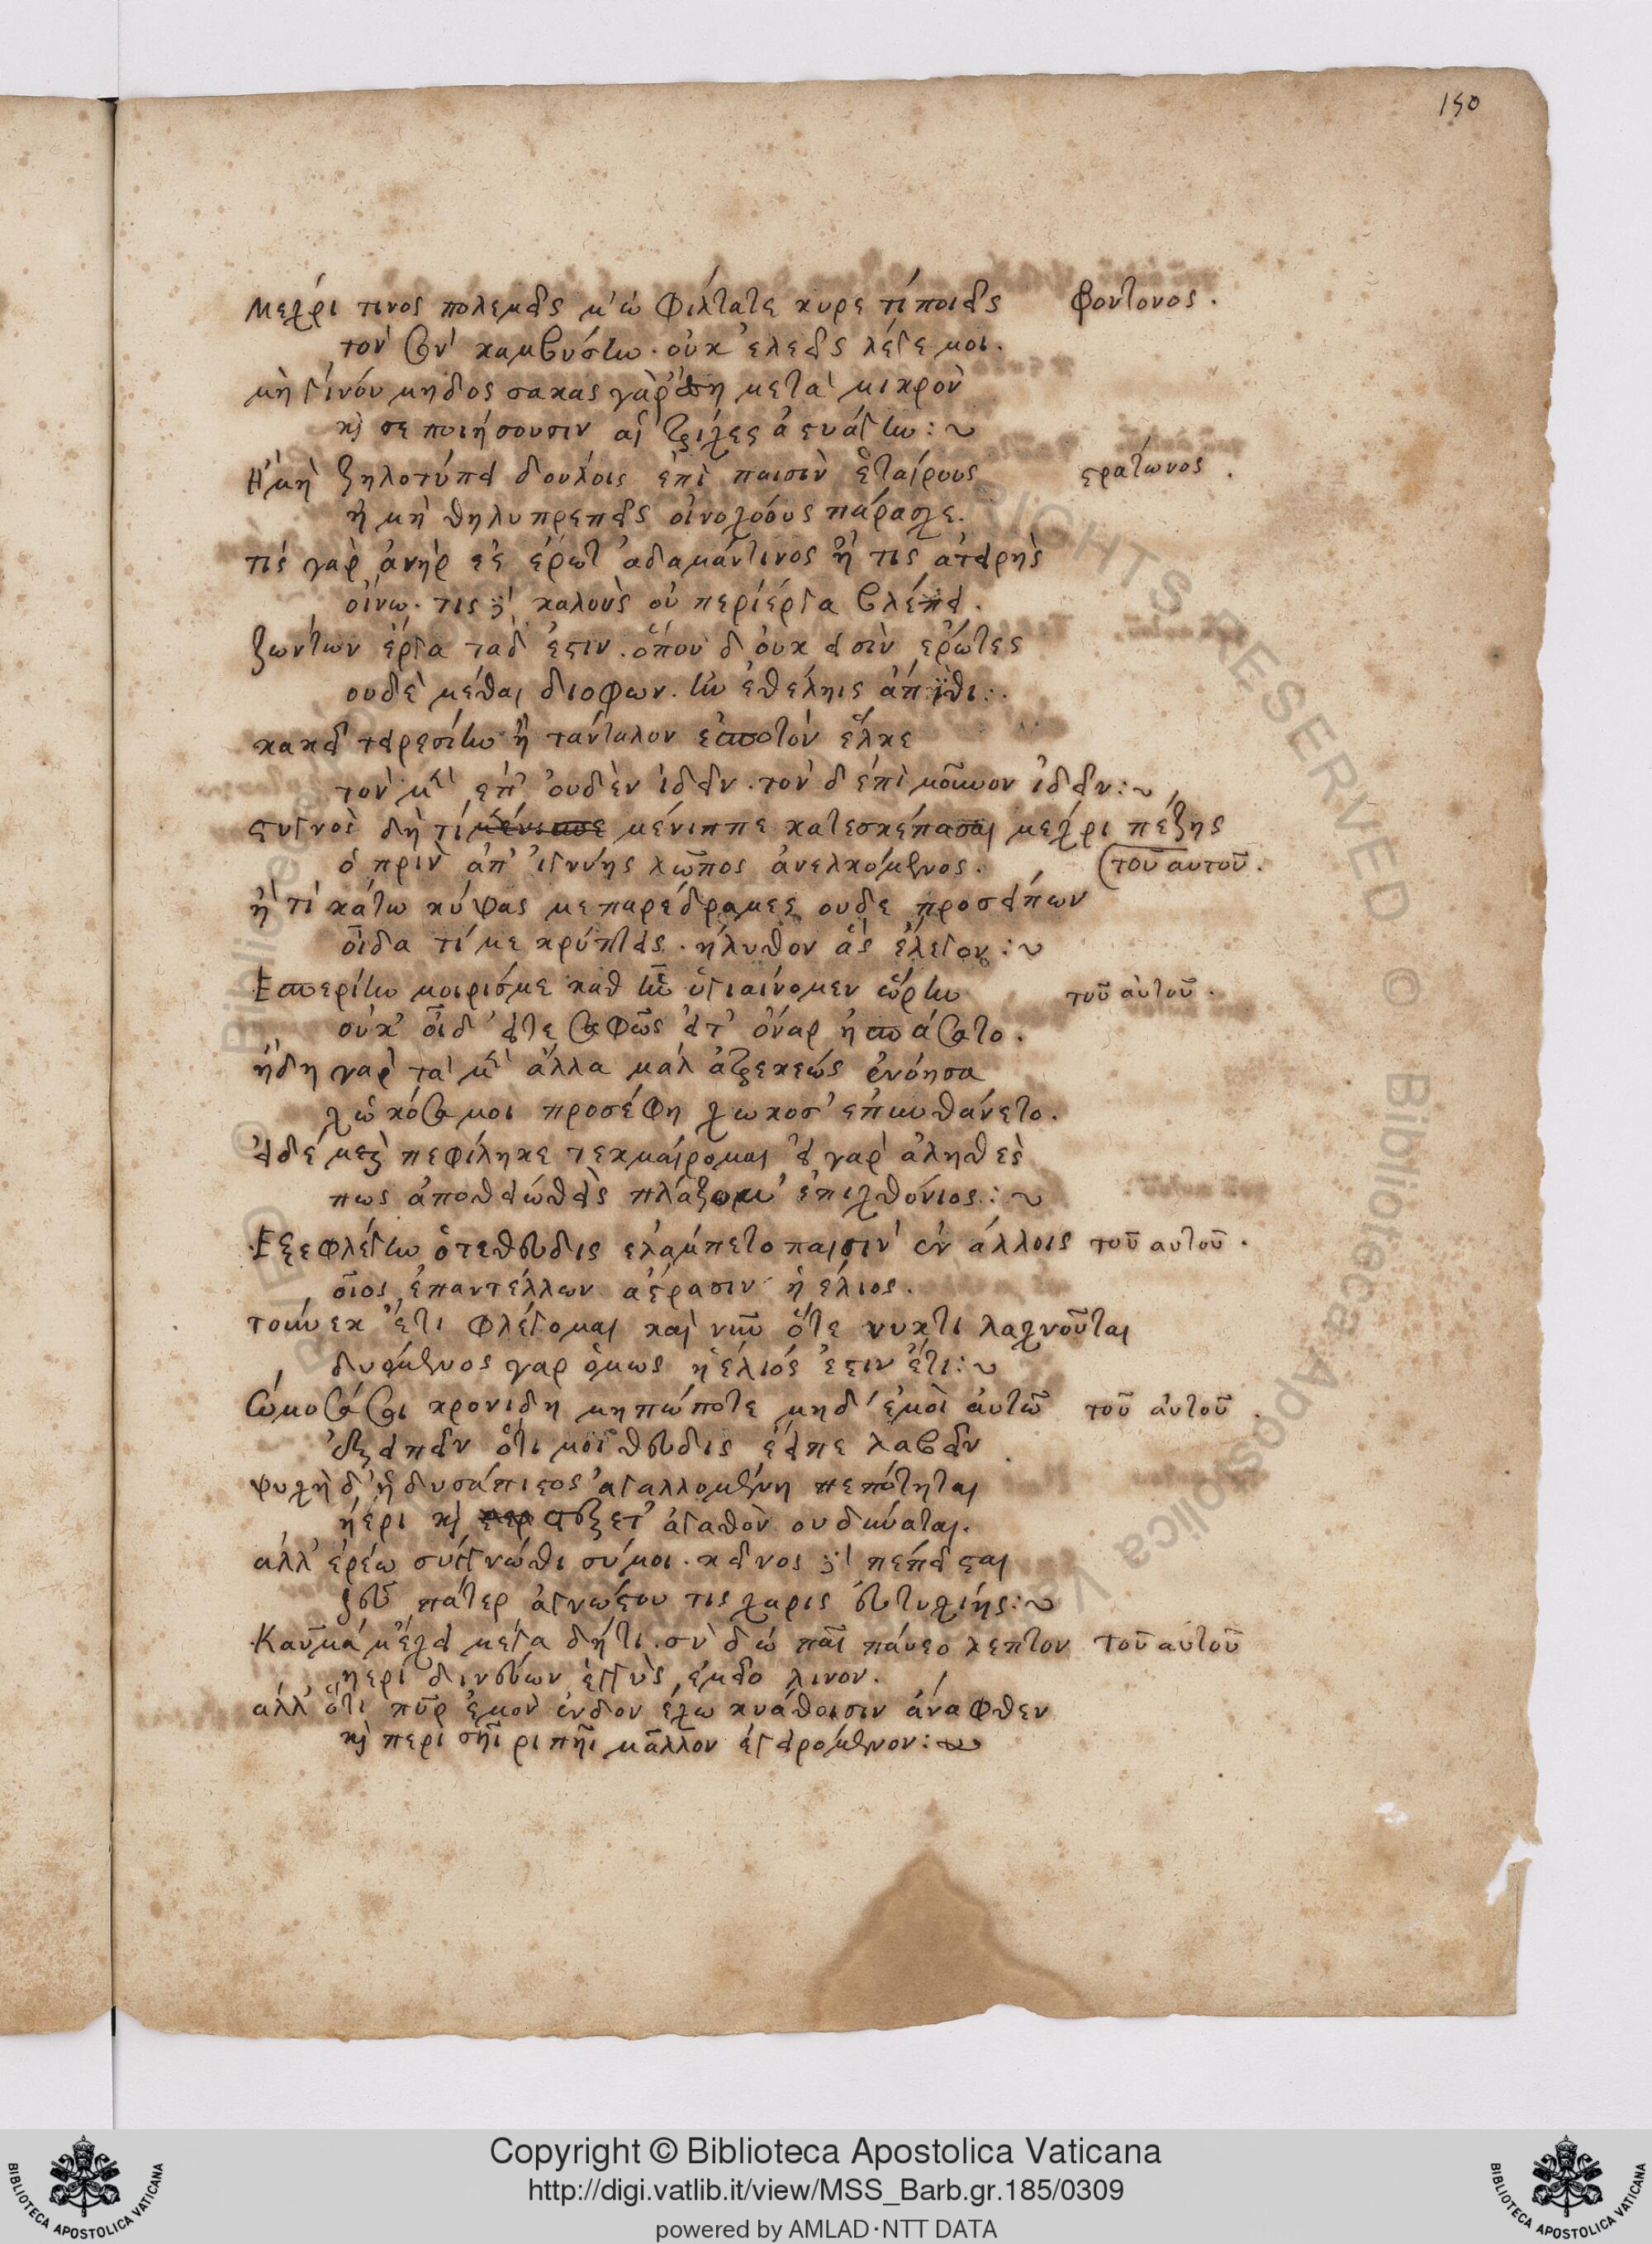 150
μεχρι τινος πολεμεῖς μ' ὦ φίλτατε κυρε τί ποιεῖς φροντονος.
τον σον καμβύσην. οὐκ' ἐλεεῖς λέγε μοι.
μὴ γίνου μηδος σακας γὰρ ἔση μετὰ μικρὸν
κ σε ποιήσουσιν αἱ τρίχες ἀστυάγην:~
Η μὴ ζηλοτύπει δούλοις ἐπὶ παισὶν ἑταίρους ερατωνος.
ἢ μὴ θηλυπρεπεῖς οἰνοχόους πάρασχε.
τίς γαρ ἀνὴρ ες ἔρωτ' ἀδαμάντινος ἢ τις ἀτειρὴς
οἴνω. τις δὲ καλοὺς οὐ περίεργα βλέπει.
ζώντων ἔργα ταδ' ἐστιν. ὅπου δ' ουκ εισὶν ἔρωτες
ουδὲ μέθαι διοφων. ἢν ἐθέληις ἄπιθι:.
κακεῖ τειρεσίην ἢ τάνταλον ες ποτόν ἕλκε
τὸν μὲν ἐπ' ουδὲν ἰδεῖν. τὸν δ' ἐπὶ μοῦνον ἰδεῖν:~
στυγνὸς δὴ τί μένιππε κατεσκέπασαι μεχρι πέζης
ὁ πρὶν ἀπ' ἰγνύης λῶπος ἀνελκόμενος. του αυτου.
ἢ τί κάτω κύψας με παρέδραμες ουδε προσειπών
οἶδα τί με κρύπτεις. ἤλυθον ἃς ἔλεγον:~
Εσπερίην μοιρίς με καθ' ἣν ὑγιαίνομεν ὥρην του αὐτου.
οὐκ' οἶδ' εἴτε σαφῶς εἴτ' ὄναρ ἠσπάσατο.
ἤδη γαρ τα μὲν ἄλλα μάλ' ἀτρεκεώς ἐνόησα
χὠκόσα μοι προσέφη χωκοσ' ἐπυνθάνετο.
εἰ δέ με πεφίληκε τεκμαίρομαι εἰ γαρ ἀληθὲς
πως ἀποθειώθεις πλάζομ' ἐπιχθόνιος:~
Εξεφλέγην ὅτε θευδις ελάμπετο παισὶν ἐν ἄλλοις του αυτου.
οἷος ἐπαντέλλων ἀέρασιν ἠέλιος.
τούνεκ' ἔτι φλέγομαι καὶ νῦν ὅτε νυκτι λαχνοῦται
δυόμενος γαρ ὅμως ἠέλιός ἐστιν ἔτι:~
Ωμοσα σοι κρονιδη μηπώποτε μηδ' ἐμοὶ αὐτῶ του αὐτου.
ἐξειπεῖν ὅτι μοι θευδις ἔειπε λαβεῖν
ψυχὴ δ' ἡ δυσάπιστος ἀγαλλομένη πεπότηται
ἠέρι κ στέξετ' ἀγαθὸν ου δύναται.
αλλ' ἐρέω σύγγνωθι σύ μοι. κεῖνος δὲ πέπεισται
ζευ πάτερ ἀγνώστου τις χαρις εὐτυχίης:~
Καῦμά μ' ἔχει μέγα δήτι. σὺ δ' ὦ παῖ παύεο λεπτον του αυτου
ηερι δινεύων ἐγγὺς ἐμεῖο λινον.
αλλ' ὅτι πῦρ ἐμον ἔνδον ἔχω κυάθοισιν ἀναφθεν
κ περι σῆι ριπῆι μᾶλλον ἐγειρόμενον:~
Copyright © Biblioteca Apostolica Vaticana
http://digi.vatlib.it/view/MSS_Barb.gr.185/0309
powered by AMLAD·NTT DATA